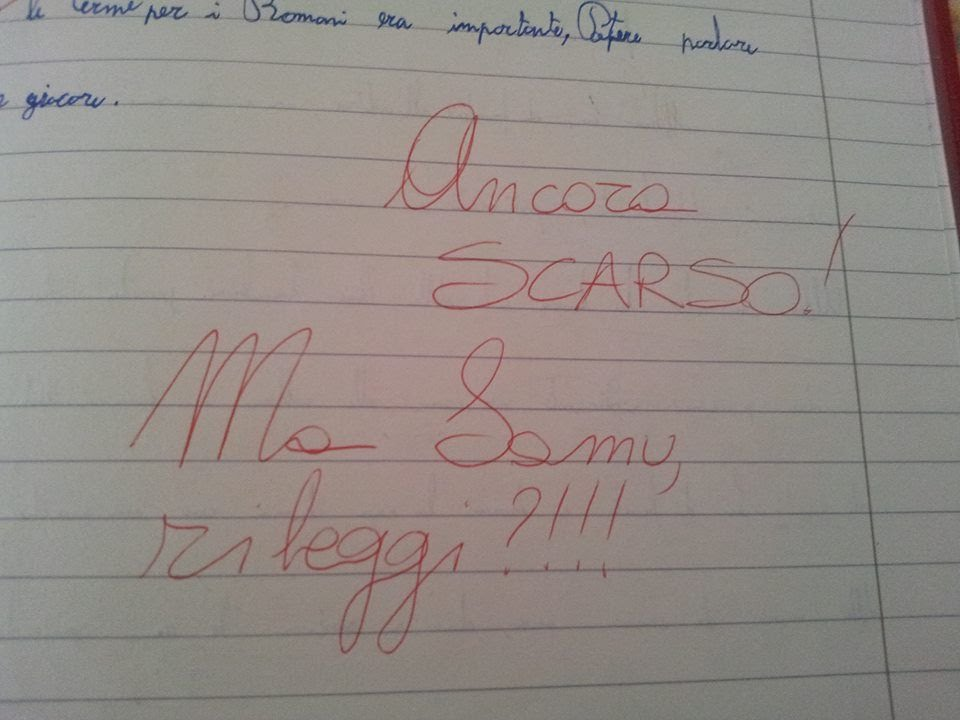 le terme per i Romani era importante, Potere parlare
e giocare.
Ancora
SCARSO!
Ma Samu,
rileggi?!!!